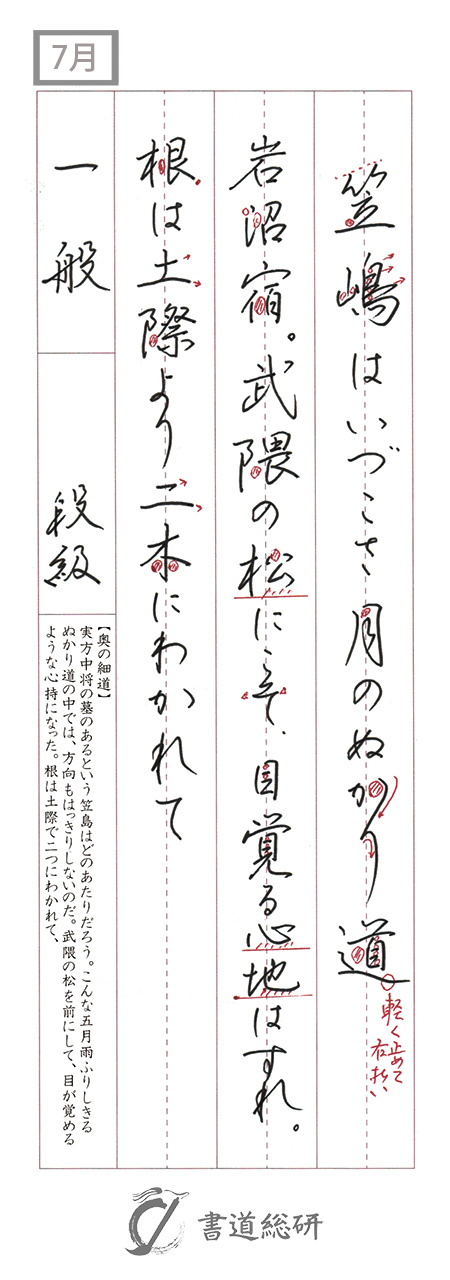 7月
笠嶋はいづこさ月のぬかり道
軽く止めて
右払い
岩沼宿。武隈の松にこそ、目覚る心地はすれ。
根は土際より二本にわかれて
一般
段級
【奥の細道】
実方中将の墓のあるという笠島はどのあたりだろう。こんな五月雨ふりしきる
ぬかり道の中では、方向もはっきりしないのだ。武隈の松を前にして、目が覚める
ような心持になった。根は土際で二つにわかれて、
書道総研